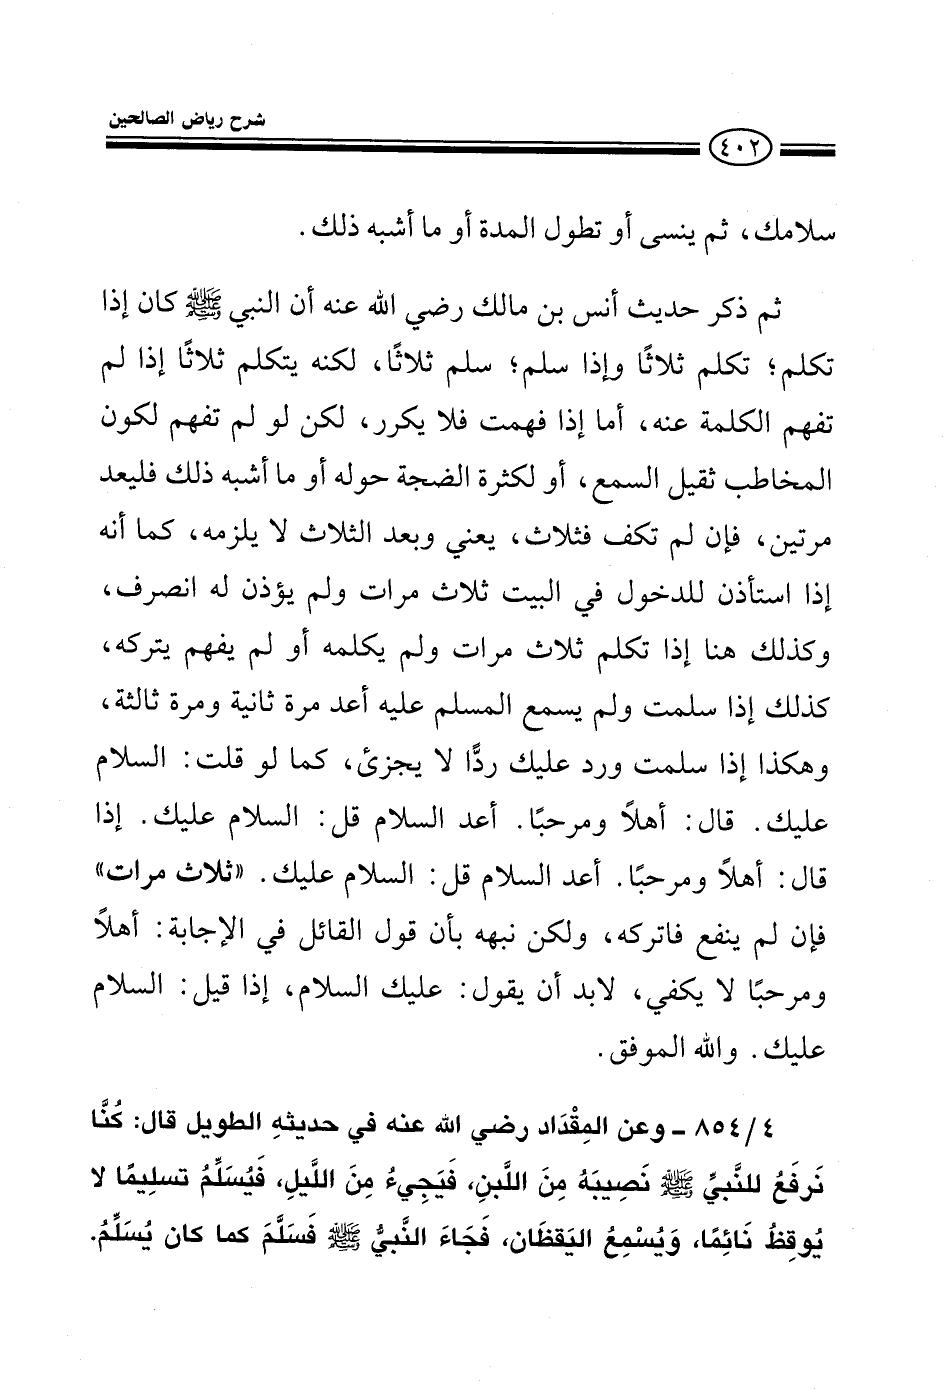 شرح رياض الصالحين
٤٠٢
سلامك، ثم ينسى أو تطول المدة أو ما أشبه ذلك.
ثم ذكر حديث أنس بن مالك رضي الله عنه أن النبي ﷺ كان إذا
تكلم؛ تكلم ثلاثًا وإذا سلم؛ سلم ثلاثًا، لكنه يتكلم ثلاثًا إذا لم
تفهم الكلمة عنه، أما إذا فهمت فلا يكرر، لكن لو لم تفهم لكون
المخاطب ثقيل السمع، أو لكثرة الضجة حوله أو ما أشبه ذلك فليعد
مرتين، فإن لم تكف فثلاث، يعني وبعد الثلاث لا يلزمه، كما أنه
إذا استأذن للدخول في البيت ثلاث مرات ولم يؤذن له انصرف،
وكذلك هنا إذا تكلم ثلاث مرات ولم يكلمه أو لم يفهم يتركه،
كذلك إذا سلمت ولم يسمع المسلم عليه أعد مرة ثانية ومرة ثالثة،
وهكذا إذا سلمت ورد عليك ردًّا لا يجزئ، كما لو قلت: السلام
عليك. قال: أهلاً ومرحبًا. أعد السلام قل: السلام عليك. إذا
قال: أهلاً ومرحبًا. أعد السلام قل: السلام عليك. «ثلاث مرات»
فإن لم ينفع فاتركه، ولكن نبهه بأن قول القائل في الإجابة: أهلاً
ومرحبًا لا يكفي، لابد أن يقول: عليك السلام، إذا قيل: السلام
عليك. والله الموفق.
٤/ ٨٥٤ ـ وعن المِقْدَاد رضي الله عنه في حديثهِ الطويل قال: كُنَّا
نَرفَعُ للنَّبيِّ ﷺ نَصِيبَهُ مِنَ اللَّبنِ، فَيَجِيءُ مِنَ اللَّيلِ، فَيُسَلِّمُ تسليمًا لا
يُوقِظُ نَائِمًا، وَيُسْمِعُ اليَقظَان، فَجَاءَ النَّبيُّ ﷺ فَسَلَّمَ كما كان يُسَلِّمُ.